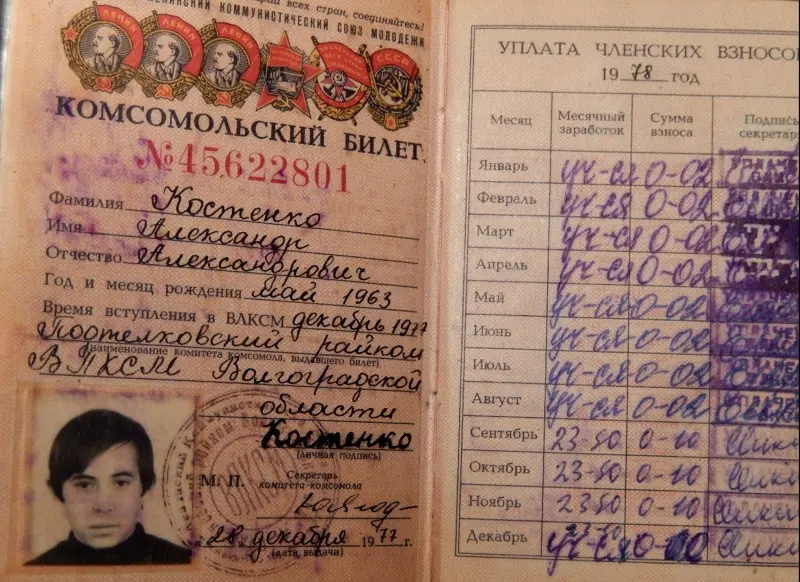 всех стран, соединяйтесь!
ЛЕНИНСКИЙ КОММУНИСТИЧЕСКИЙ СОЮЗ МОЛОДЕЖИ
ЛЕНИН ЛЕНИН ЛЕНИН СССР
КОМСОМОЛЬСКИЙ БИЛЕТ
№45622801
Фамилия Костенко
Имя Александр
Отчество Александрович
Год и месяц рождения май 1963
Время вступления в ВЛКСМ декабрь 1977
райком
(наименование комитета комсомола, выдавшего билет)
ВЛКСМ Волгоградской
области
Костенко
(личная подпись)
М. П. Секретарь
комитета комсомола
28 декабря 1977 г.
(дата выдачи)
УПЛАТА ЧЛЕНСКИХ ВЗНОСО
1978 год
Месяц Месячный заработок Сумма взноса Подпись секретар
Январь уч-ся 0-02
Февраль уч-ся 0-02
Март уч-ся 0-02
Апрель уч-ся 0-02
Май уч-ся 0-02
Июнь уч-ся 0-02
Июль уч-ся 0-02
Август уч-ся 0-02
Сентябрь 23-50 0-10
Октябрь 23-50 0-10
Ноябрь 23-50 0-10
Декабрь